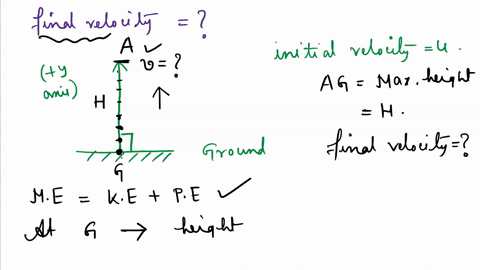 final velocity = ?
A ✓
v = ?
(+y
axis)
H
G
Ground
initial velocity = u.
AG = Max. height
= H.
final velocity = ?
M.E = K.E + P.E ✓
At G → height